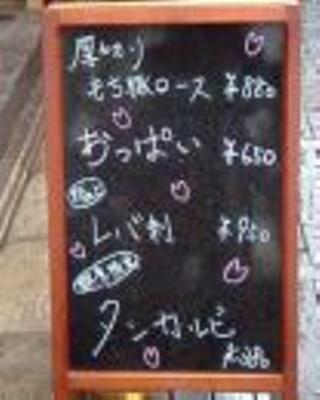 厚切り
もち豚ロース ¥880
おっぱい ¥650
レバ刺 ¥850
タンカルビ